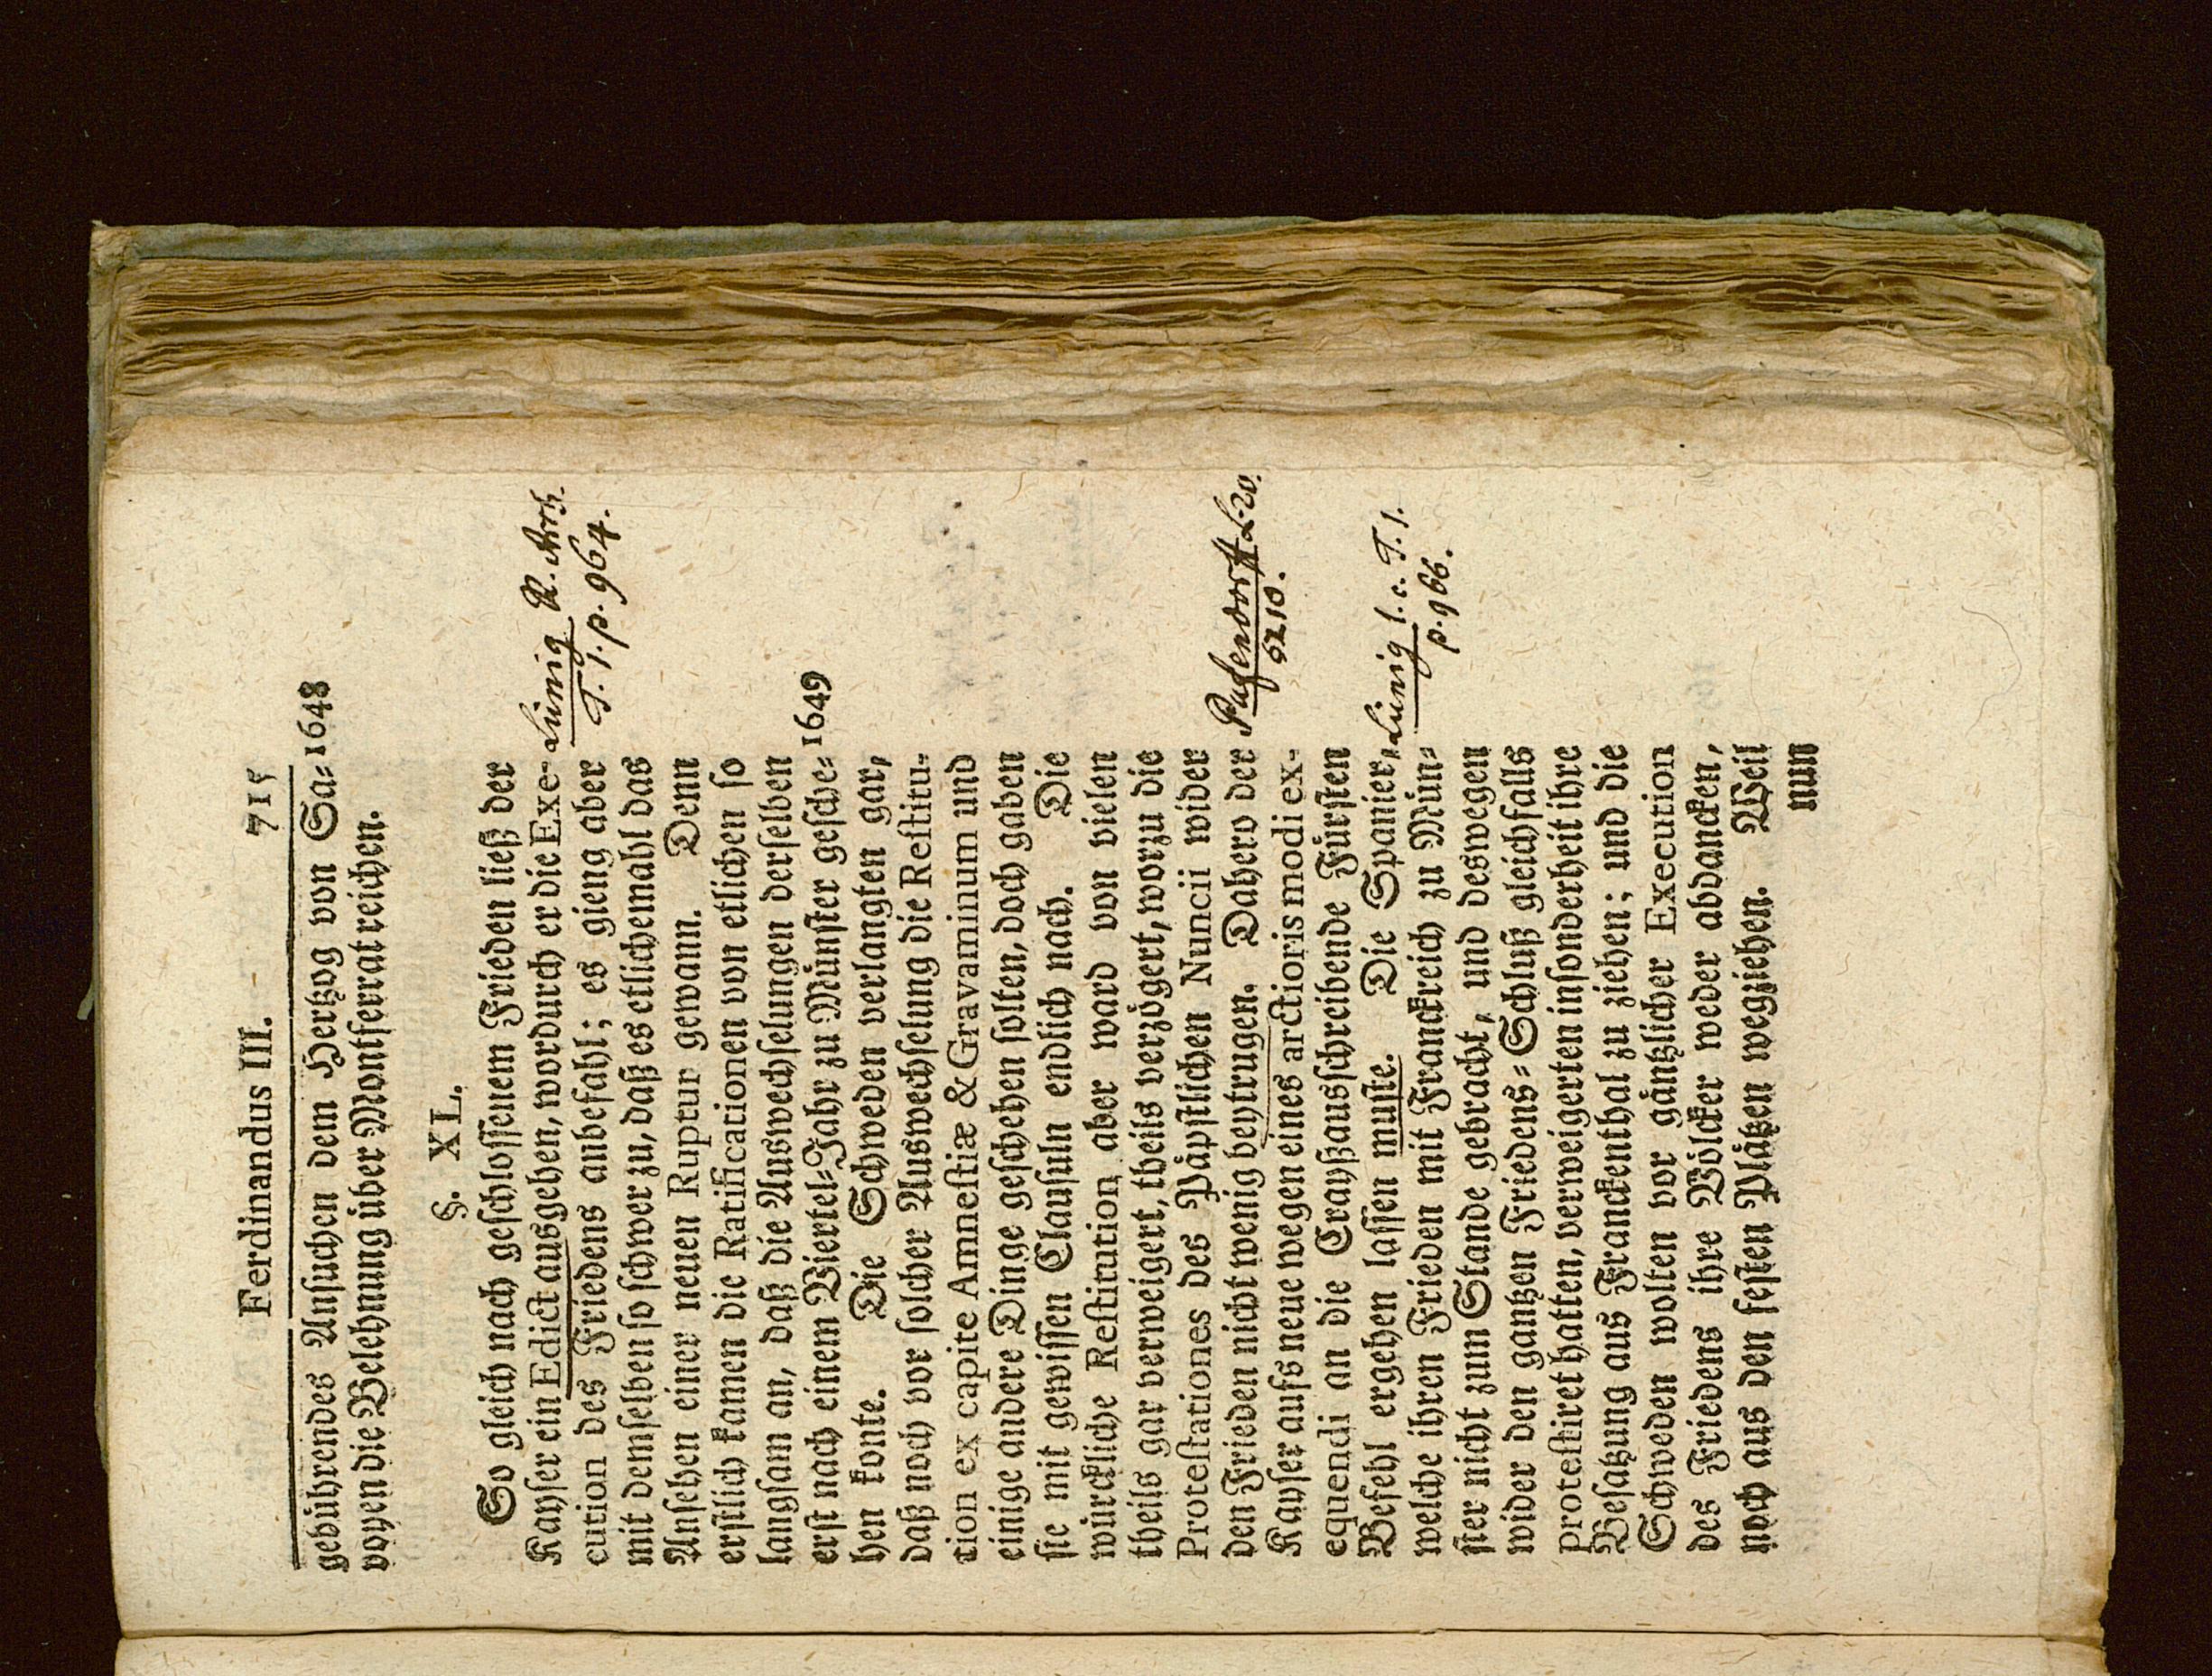 Ferdinandus III. 715
gebührendes Ansuchen dem Hertzog von Sa- 1648
voyen die Belehnung über Montferrat reichen.
§. XL.
So gleich nach geschlossenem Frieden ließ der
Kayser ein Edict ausgehen, wordurch er die Exe- Lünig R. Arch.
cution des Friedens anbefahl; es gieng aber T. 1. p. 964.
mit demselben so schwer zu, daß es etlichemahl das
Ansehen einer neuen Ruptur gewann. Denn
erstlich kamen die Ratificationen von etlichen so
langsam an, daß die Auswechselungen derselben
erst nach einem Viertel-Jahr zu Münster gesche- 1649
hen konte. Die Schweden verlangten gar,
daß noch vor solcher Auswechselung die Restitu-
tion ex capite Amnestiæ & Gravaminum und
einige andere Dinge geschehen solten, doch gaben
sie mit gewissen Clausuln endlich nach. Die
würckliche Restitution aber ward von vielen
theils gar verweigert, theils verzögert, worzu die
Protestationes des Päpstlichen Nuncii wider
den Frieden nicht wenig beytrugen. Dahero der Pufendorff L. 20.
Kayser aufs neue wegen eines arctioris modi ex- 210.
equendi an die Crayßausschreibende Fürsten
Befehl ergehen lassen muste. Die Spanier, Lünig l. c. T. 1.
welche ihren Frieden mit Franckreich zu Mün- p. 966.
ster nicht zum Stande gebracht, und deswegen
wider den gantzen Friedens-Schluß gleichfalls
protestiret hatten, verweigerten insonderheit ihre
Besatzung aus Franckenthal zu ziehen; und die
Schweden wolten vor gäntzlicher Execution
des Friedens ihre Völcker weder abdancken,
noch aus den festen Plätzen wegziehen. Weil
nun